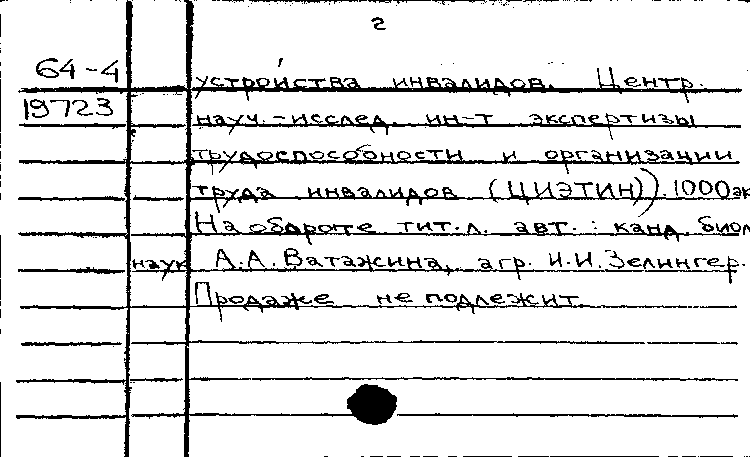 2
64-4
устройства инвалидов. Центр.
19723
науч.-исслед. ин-т экспертизы
трудоспособности и организации
труда инвалидов (ЦИЭТИН)). 1000 эк
На обороте тит. л. авт.: канд. биол
наук А.А. Ватажина, агр. И.И. Зелингер.
Продаже не подлежит.